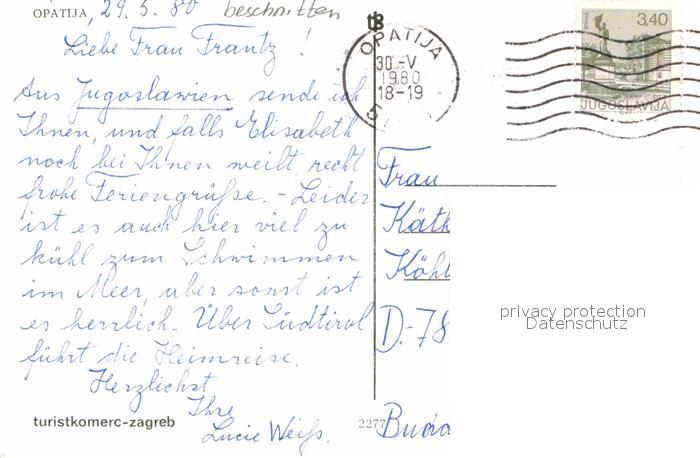 OPATIJA, 29.5.80 beschnitten
Liebe Frau Frantz!
Aus Jugoslawien sende ich
Ihnen, und falls Elisabeth
noch bei Ihnen weilt, recht
frohe Feriengrüße. - Leider
ist es auch hier viel zu
kühl zum Schwimmen
im Meer, aber sonst ist
es herrlich. Über Südtirol
führt die Heimreise.
Herzlichst
Ihre
Lucie Weiß.
turistkomerc-zagreb
2277
OPATIJA
30-V
1980
18-19
3,40
JUGOSLAVIJA
Frau
Käth
Köhl
D-78
privacy protection
Datenschutz